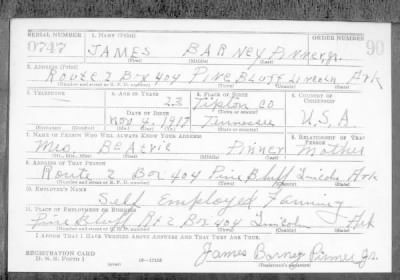 SERIAL NUMBER 1. NAME (Print) ORDER NUMBER
0747 JAMES BARNEY Pinner Jr. 90
(First) (Middle) (Last)
2. ADDRESS (Print)
Route 2 Box 404 Pine Bluff Lincoln Ark
(Number and street or R. F. D. number) (Town) (County) (State)
3. TELEPHONE 4. AGE IN YEARS 5. PLACE OF BIRTH 6. COUNTRY OF CITIZENSHIP
23 Tipton Co
DATE OF BIRTH (Town or county)
Nov 4 1917 Tennessee U.S.A.
(Exchange) (Number) (Mo.) (Day) (Yr.) (State or country)
7. NAME OF PERSON WHO WILL ALWAYS KNOW YOUR ADDRESS 8. RELATIONSHIP OF THAT PERSON
Mrs Pinner Mother
(Mr., Mrs., Miss) (First) (Middle) (Last)
9. ADDRESS OF THAT PERSON
Route 2 Box 404 Pine Bluff Lincoln Ark
(Number and street or R. F. D. number) (Town) (County) (State)
10. EMPLOYER'S NAME
Self Employed Farming
11. PLACE OF EMPLOYMENT OR BUSINESS
Pine Bluff Rt 2 Box 404 Lincoln Ark
(Number and street or R. F. D. number) (Town) (County) (State)
I AFFIRM THAT I HAVE VERIFIED ABOVE ANSWERS AND THAT THEY ARE TRUE.
REGISTRATION CARD James Barney Pinner Jr.
D. S. S. Form 1 (over) 16-17105 (Registrant's signature)